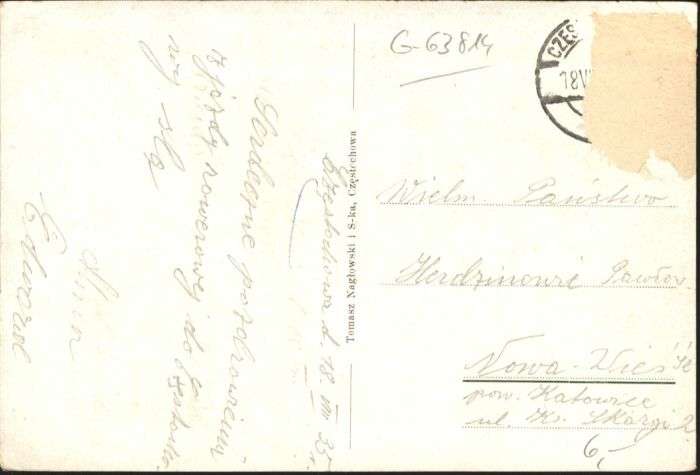 G-63814
CZĘS
18 VI
Częstochowa d. 18. VIII 35 r.
Serdeczne pozdrowienia
z jazdy rowerowej do Często
wy ślą
Edward
Tomasz Nagłowski i S-ka, Częstochowa
Wielm. Państwo
Herdzinowie
Nowa-Wieś
pow. Katowice
ul. Ks. Skargi 2
6,-